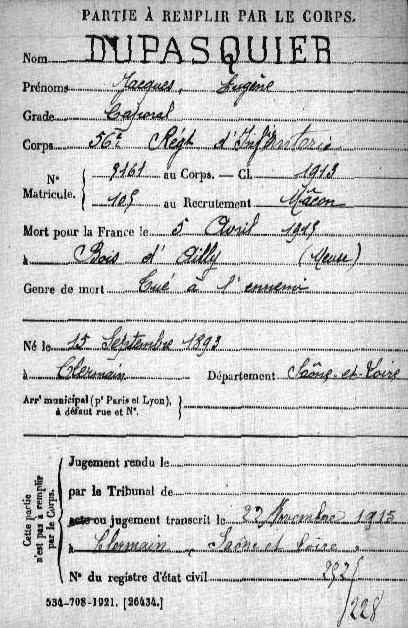 PARTIE À REMPLIR PAR LE CORPS.
Nom DUPASQUIER
Prénoms Jacques, Eugène
Grade Caporal
Corps 56e Régt d'Infanterie
N° Matricule. { 5161 au Corps. — Cl. 1913
105 au Recrutement Mâcon
Mort pour la France le 5 Avril 1915
à Bois d'Ailly (Meuse)
Genre de mort Tué à l'ennemi
Né le 15 Septembre 1893
à Clermain Département Saône-et-Loire
Arrt municipal (pr Paris et Lyon), à défaut rue et N°. }
Cette partie n'est pas à remplir par le Corps.
Jugement rendu le
par le Tribunal de
acte ou jugement transcrit le 22 Novembre 1915
à Clermain, Saône et Loire
N° du registre d'état civil
534-708-1921. [26434.] /228